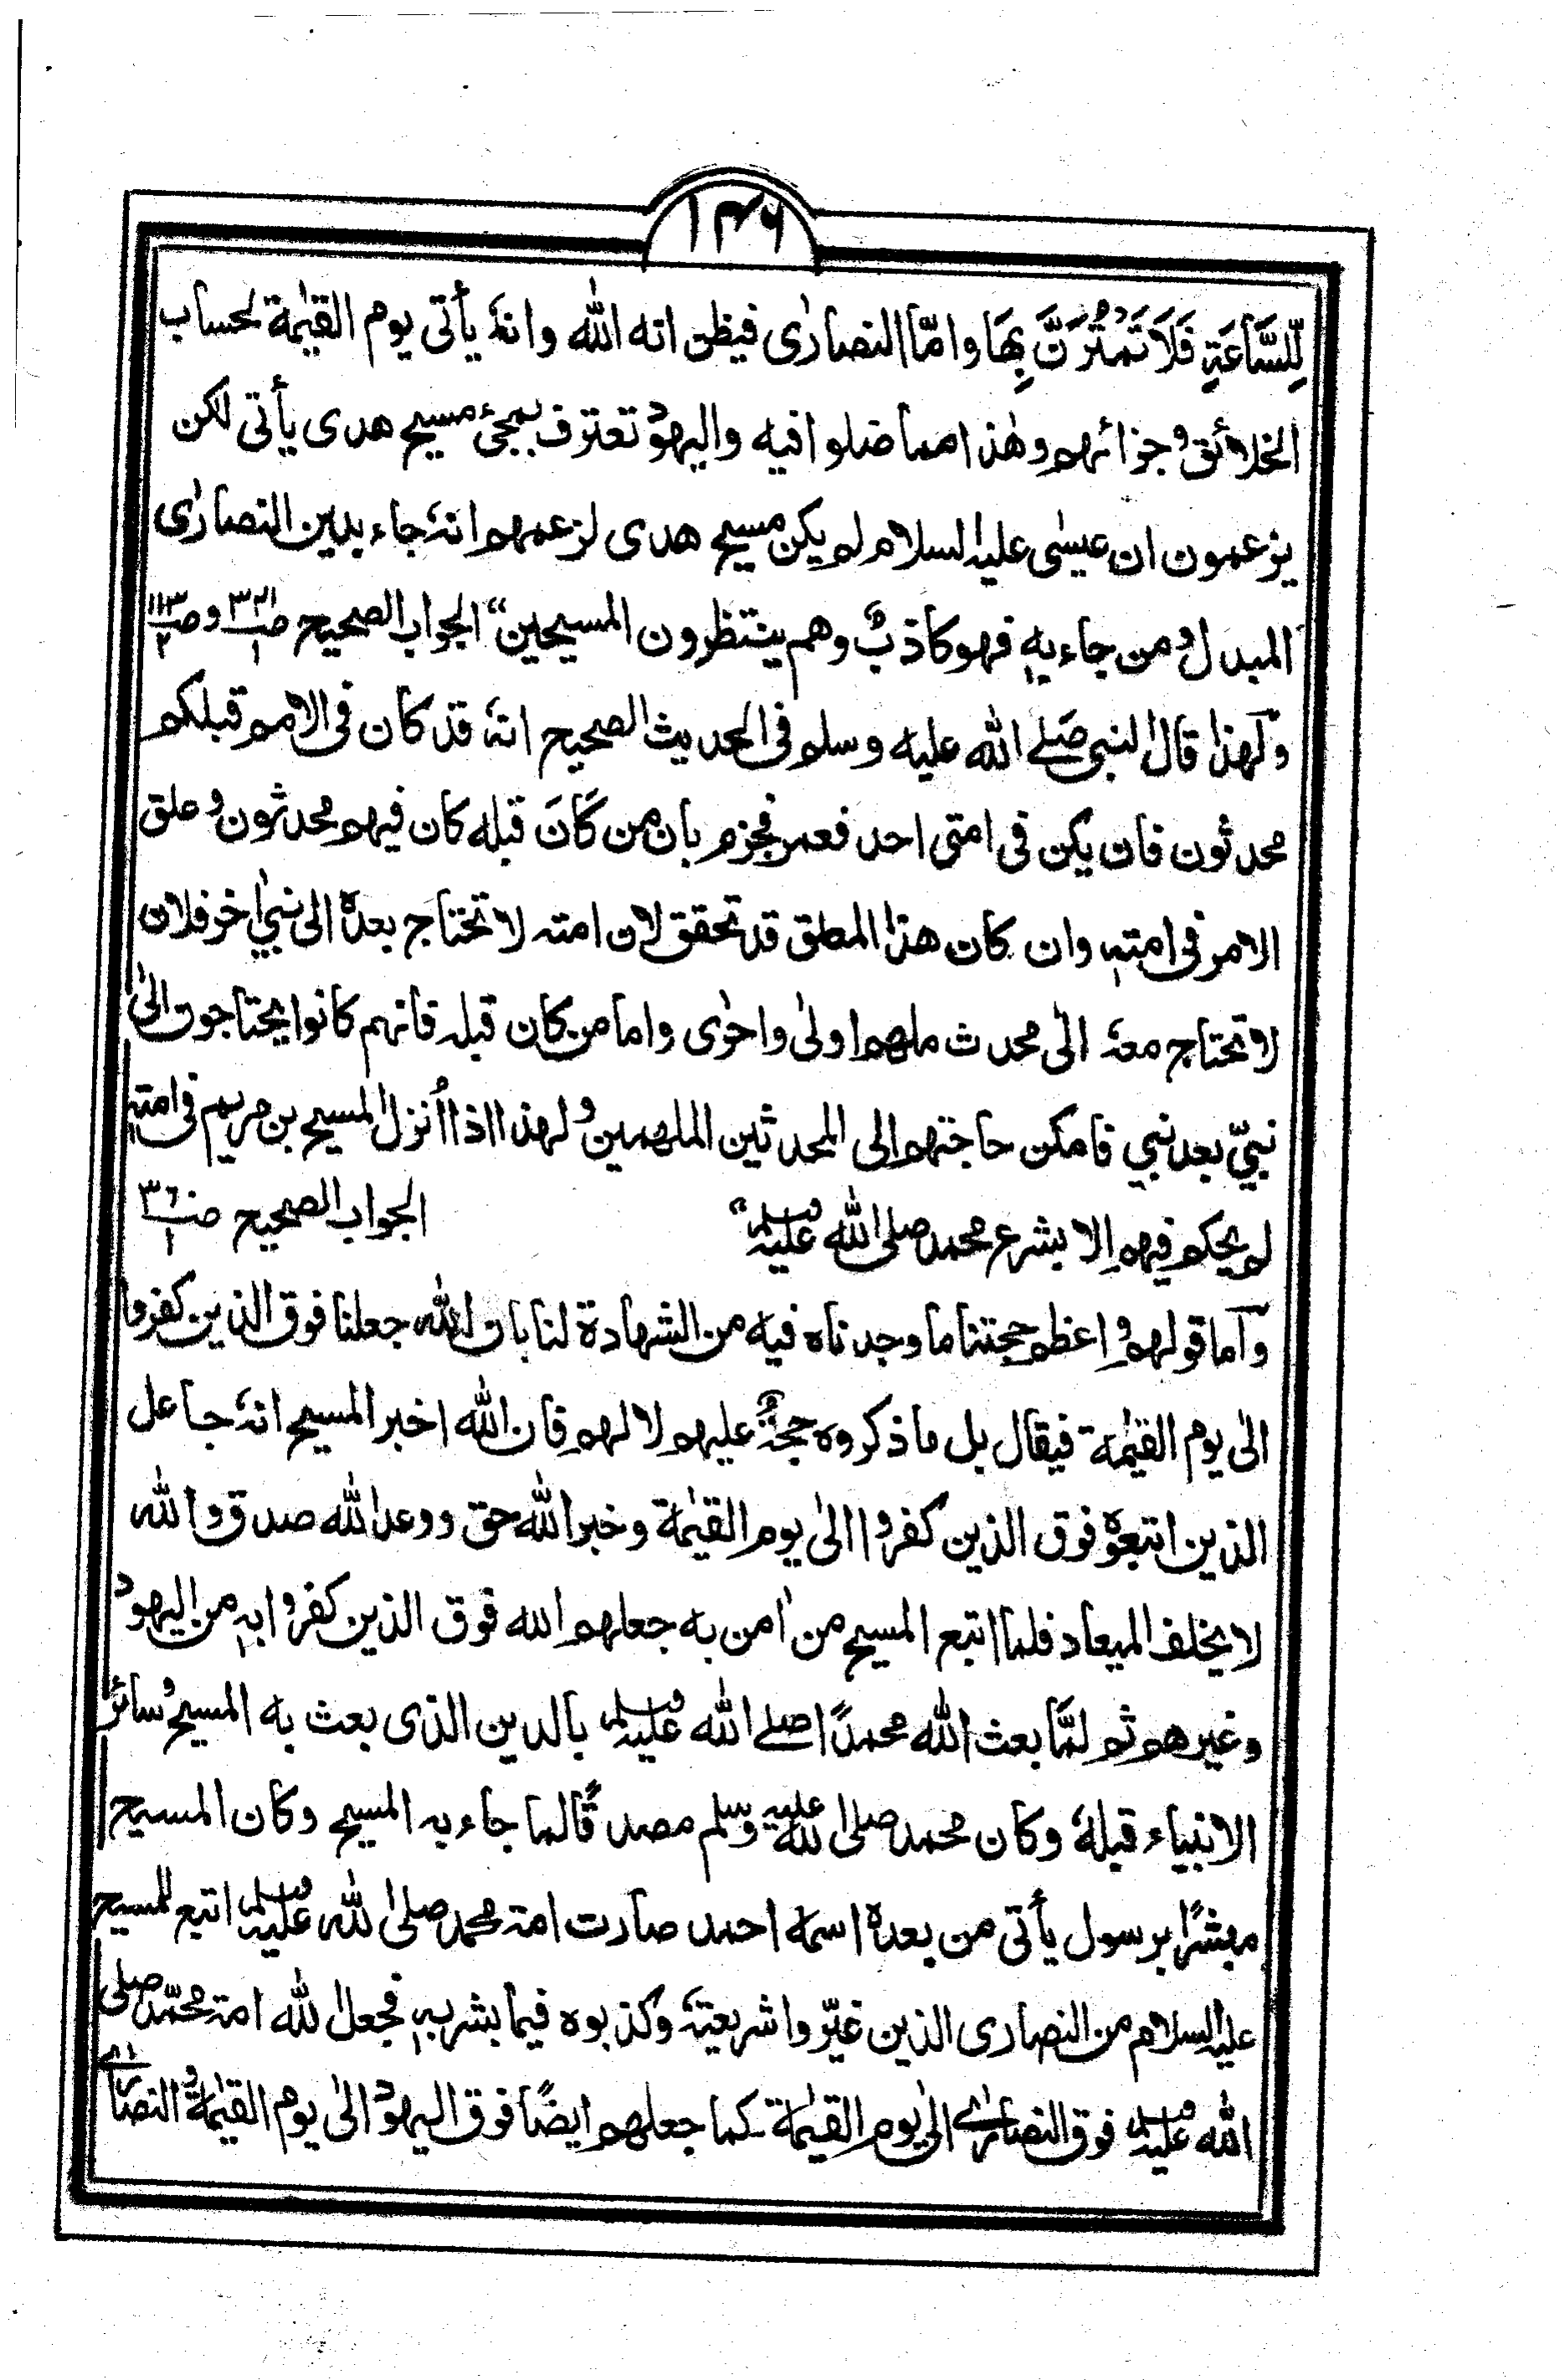 ۱۴۶
لِّلسَّاعَةِ فَلَا تَمْتَرُنَّ بِهَا وامّا النصارٰى فيظن انه الله وانهٗ يأتى يوم القيٰمة لحساب
الخلائق وجزائهم وهٰذا مما ضلوا فيه واليهود تعترف بمجئ مسيح هدى يأتى لكن
يزعمون ان عيسٰى عليه السلام لم يكن مسيح هدى لزعمهم انهٗ جاء بدين النصارٰى
المبدل ومن جاء به فهو كاذبٌ وهم ينتظرون المسيحين" الجواب الصحيح صـ۳۴۱/۱ وصـ۱۱۳/۲
ولهذا قال النبى صلے الله عليه وسلم فى الحديث الصحيح انهٗ قد كان فى الامم قبلكم
محدثون فان يكن فى امتى احد فعمر فجزم بان من كَانَ قبله كان فيهم محدثون وعلق
الامر فى امته وان كان هذا المطلق قد تحقق لان امته لا تحتاج بعدهٗ الى نبي اٰخر فلان
لا تحتاج معهٗ الٰى محدث ملهم اولىٰ واحرٰى واما من كان قبله فانهم كانوا يحتاجون الىٰ
نبيّ بعد نبي فامكن حاجتهم الى المحدثين الملهمين ولهذا اذا اُنزل المسيح بن مريم فى امته
لم يحكم فيهم الا بشرع محمد صلى الله عليه وسلم" الجواب الصحيح صـ۳۶/۱
وآما قولهم واعظم حجتنا ما وجدناه فيه من الشهادة لنا بان الله جعلنا فوق الذين كفروا
الٰى يوم القيٰمة فيقال بل ما ذكروه حجةٌ عليهم لا لهم فان الله اخبر المسيح انهٗ جاعل
الذين اتبعوه فوق الذين كفروا الىٰ يوم القيٰمة وخبر الله حق ووعد الله صدق والله
لا يخلف الميعاد فلما اتبع المسيح من اٰمن به جعلهم الله فوق الذين كفروا به من اليهود
وغيرهم ثم لمّا بعث الله محمدًا صلے الله عليه وسلم بالدين الذى بعث به المسيح وسائر
الانبياء قبلهٗ وكان محمد صلى الله عليه وسلم مصدقًا لما جاء به المسيح وكان المسيح
مبشرًا برسول يأتى من بعدهٖ اسمهٗ احمد صارت امة محمد صلى الله عليه وسلم اتبع للمسيح
عليه السلام من النصارى الذين غيّروا شريعتهٗ وكذبوه فيما بشر به فجعل الله امة محمّد صلى
الله عليه وسلم فوق النصارٰے الىٰ يوم القيٰمة كما جعلهم ايضًا فوق اليهود الىٰ يوم القيٰمة والنصارٰے